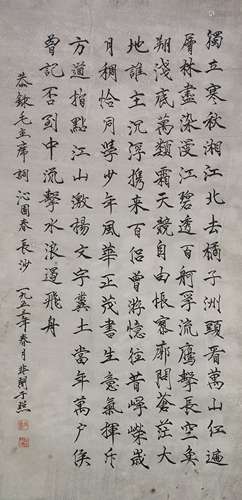 獨立寒秋湘江北去橘子洲頭看萬山红遍
層林盡染漫江碧透百舸爭流鷹擊長空魚
翔浅底萬類霜天競自由悵寥廓問蒼茫大
地誰主沉浮携来百侣曾游憶往昔崢嶸歲
月稠恰同學少年風華正茂書生意氣揮斥
方遒指點江山激揚文字糞土當年萬户侯
曾記否到中流擊水浪遏飛舟
恭録毛主席詞沁園春長沙 一九五年春月非闇于照